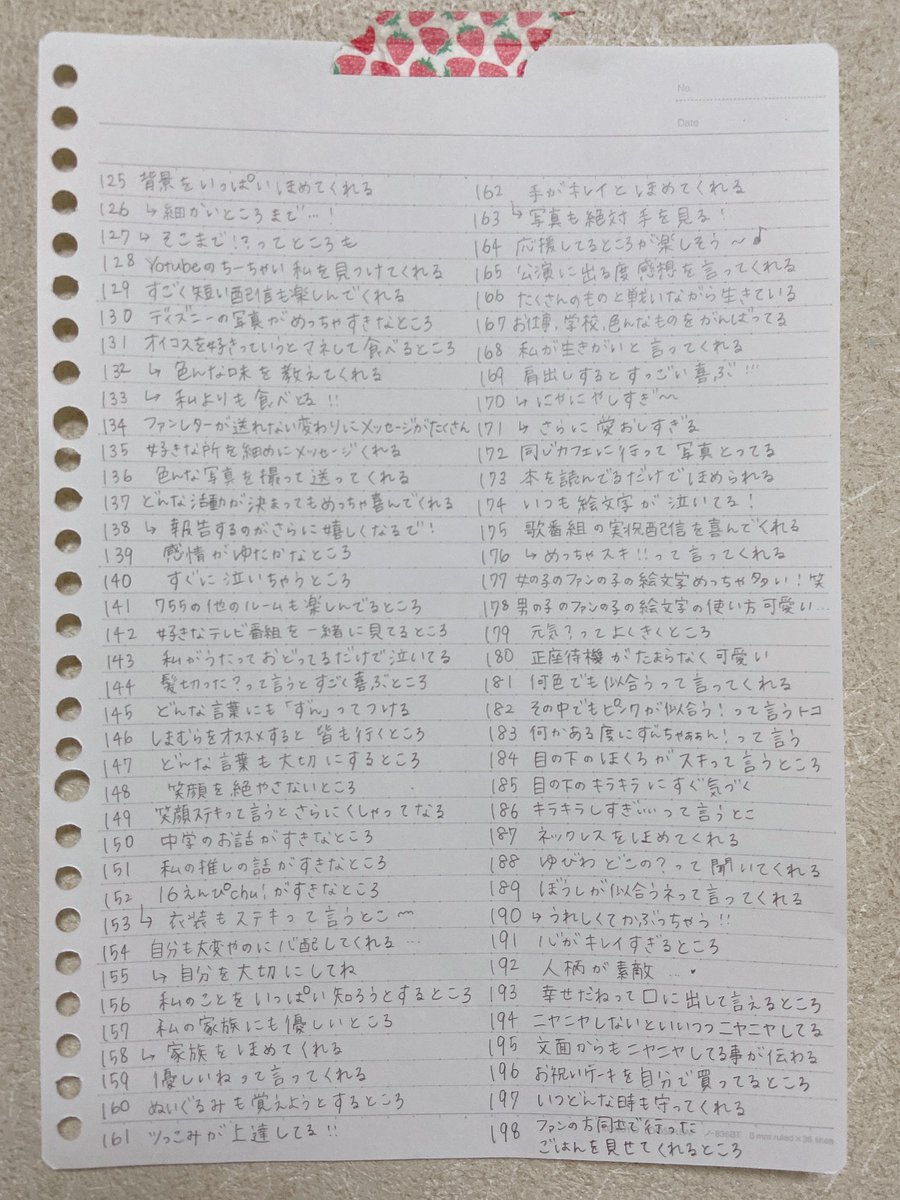 No.
Date
125 背景をいっぱいほめてくれる
126 ↳細かいところまで…!
127 ↳そこまで!?ってところも
128 Yotubeのちーちゃい私を見つけてくれる
129 すごく短い配信も楽しんでくれる
130 ディズニーの写真がめっちゃすきなところ
131 オイコスを好きっていうとマネして食べるところ
132 ↳色んな味を教えてくれる
133 ↳私よりも食べとる!!
134 ファンレターが送れない変わりにメッセージがたくさん
135 好きな所を細めにメッセージくれる
136 色んな写真を撮って送ってくれる
137 どんな活動が決まってもめっちゃ喜んでくれる
138 ↳報告するのがさらに嬉しくなるで!
139 感情がゆたかなところ
140 すぐに泣いちゃうところ
141 755の他のルームも楽しんでるところ
142 好きなテレビ番組を一緒に見てるところ
143 私がうたっておどってるだけで泣いてる
144 髪切った?って言うとすごく喜ぶところ
145 どんな言葉にも「ずん」ってつける
146 しまむらをオススメすると皆も行くところ
147 どんな言葉も大切にするところ
148 笑顔を絶やさないところ
149 笑顔ステキって言うとさらにくしゃってなる
150 中学のお話がすきなところ
151 私の推しの話がすきなところ
152 16えんぴchu!がすきなところ
153 ↳衣装もステキって言うとこ〜
154 自分も大変やのに心配してくれる…
155 ↳自分を大切にしてね
156 私のことをいっぱい知ろうとするところ
157 私の家族にも優しいところ
158 ↳家族をほめてくれる
159 優しいねって言ってくれる
160 ぬいぐるみも覚えようとするところ
161 ツっこみが上達してる!!
162 手がキレイとほめてくれる
163 ↳写真も絶対手を見る!
164 応援してるところが楽しそう〜♪
165 公演に出る度感想を言ってくれる
166 たくさんのものと戦いながら生きている
167 お仕事,学校,色んなものをがんばってる
168 私が生きがいと言ってくれる
169 肩出しするとすっごい喜ぶ!!!
170 ↳にやにやしすぎ〜
171 ↳さらに愛おしすぎる
172 同じカフェに行って写真とってる
173 本を読んでるだけでほめられる
174 いつも絵文字が泣いてる!
175 歌番組の実況配信を喜んでくれる
176 ↳めっちゃスキ!!って言ってくれる
177 女の子のファンの子の絵文字めっちゃ多い!笑
178 男の子のファンの子の絵文字の使い方可愛い…
179 元気?ってよくきくところ
180 正座待機がたまらなく可愛い
181 何色でも似合うって言ってくれる
182 その中でもピンクが似合う!って言うトコ
183 何かある度にずんちゃぁぁん!って言う
184 目の下のほくろがスキって言うところ
185 目の下のキラキラにすぐ気づく
186 キラキラしすぎぃぃって言うとこ
187 ネックレスをほめてくれる
188 ゆびわどこの?って聞いてくれる
189 ぼうしが似合うネって言ってくれる
190 ↳うれしくてかぶっちゃう!!
191 心がキレイすぎるところ
192 人柄が素敵…
193 幸せだねって口に出して言えるところ
194 ニヤニヤしないといいつつニヤニヤしてる
195 文面からもニヤニヤしてる事が伝わる
196 お祝いケーキを自分で買ってるところ
197 いつどんな時も守ってくれる
198 ファンの方同士で行った
ごはんを見せてくれるところ
ノ-836BT 8 mm ruled×36 lines